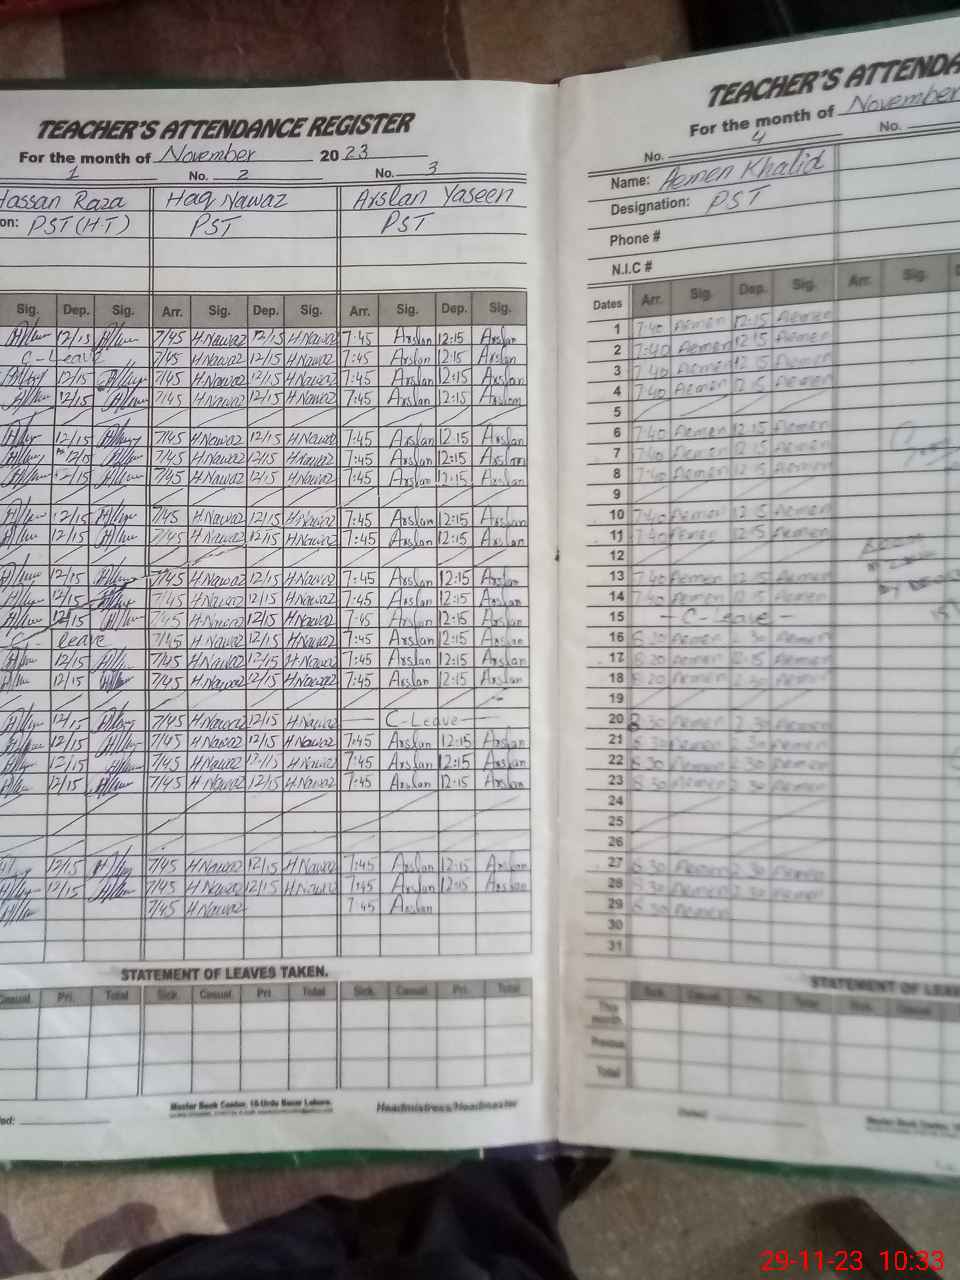 TEACHER'S ATTENDANCE REGISTER
For the month of November 2023
1 No. 2 No. 3
Hassan Raza Haq Nawaz Arslan Yaseen
on: PST (H.T) PST PST
Sig. Dep. Sig. Arr. Sig. Dep. Sig. Arr. Sig. Dep. Sig.
12/15 7/45 H.Nawaz 12/15 H.Nawaz 7:45 Arslan 12:15 Arslan
C-Leave 7/45 H.Nawaz 12/15 H.Nawaz 7:45 Arslan 12:15 Arslan
12/15 7/45 H.Nawaz 12/15 H.Nawaz 7:45 Arslan 12:15 Arslan
12/15 7/45 H.Nawaz 12/15 H.Nawaz 7:45 Arslan 12:15 Arslan
12/15 7/45 H.Nawaz 12/15 H.Nawaz 7:45 Arslan 12:15 Arslan
12/15 7/45 H.Nawaz 12/15 H.Nawaz 7:45 Arslan 12:15 Arslan
12/15 7/45 H.Nawaz 12/15 H.Nawaz 7:45 Arslan 12:15 Arslan
12/15 7/45 H.Nawaz 12/15 H.Nawaz 7:45 Arslan 12:15 Arslan
12/15 7/45 H.Nawaz 12/15 H.Nawaz 7:45 Arslan 12:15 Arslan
12/15 7/45 H.Nawaz 12/15 H.Nawaz 7:45 Arslan 12:15 Arslan
12/15 7/45 H.Nawaz 12/15 H.Nawaz 7:45 Arslan 12:15 Arslan
12/15 7/45 H.Nawaz 12/15 H.Nawaz 7:45 Arslan 12:15 Arslan
C- leave 7/45 H.Nawaz 12/15 H.Nawaz 7:45 Arslan 12:15 Arslan
12/15 7/45 H.Nawaz 12/15 H.Nawaz 7:45 Arslan 12:15 Arslan
12/15 7/45 H.Nawaz 12/15 H.Nawaz 7:45 Arslan 12:15 Arslan
12/15 7/45 H.Nawaz 12/15 H.Nawaz C-Leave
12/15 7/45 H.Nawaz 12/15 H.Nawaz 7:45 Arslan 12:15 Arslan
12/15 7/45 H.Nawaz 12/15 H.Nawaz 7:45 Arslan 12:15 Arslan
12/15 7/45 H.Nawaz 12/15 H.Nawaz 7:45 Arslan 12:15 Arslan
12/15 7/45 H.Nawaz 12/15 H.Nawaz 7:45 Arslan 12:15 Arslan
12/15 7/45 H.Nawaz 12/15 H.Nawaz 7:45 Arslan 12:15 Arslan
7/45 H.Nawaz 7:45 Arslan
STATEMENT OF LEAVES TAKEN.
Casual Pri. Total Sick Casual Pri Total Sick Casual Pri. Total
Master Book Center, 16-Urdu Bazar Lahore.
Headmistress/Headmaster
TEACHER'S ATTENDA
For the month of November
No. 4 No.
Name: Aemen Khalid
Designation: PST
Phone #
N.I.C #
Dates Arr. Sig. Dep. Sig. Arr. Sig.
1 7:40 Aemen 12:15 Aemen
2 7:40 Aemen 12:15 Aemen
3 7:40 Aemen 12:15 Aemen
4 7:40 Aemen 12:15 Aemen
5
6 7:40 Aemen 12:15 Aemen
7 7:40 Aemen 12:15 Aemen
8 7:40 Aemen 12:15 Aemen
9
10 7:40 Aemen 12:15 Aemen
11 7:40 Aemen 12:15 Aemen
12
13 7:40 Aemen 12:15 Aemen
14 7:40 Aemen 12:15 Aemen
15 - C-Leave -
16 8:20 Aemen 2:30 Aemen
17 8:20 Aemen 12:15 Aemen
18 8:20 Aemen 2:30 Aemen
19
20 8:30 Aemen 2:30 Aemen
21 8:30 Aemen 2:30 Aemen
22 8:30 Aemen 2:30 Aemen
23 8:30 Aemen 2:30 Aemen
24
25
26
27 8:30 Aemen 2:30 Aemen
28 8:30 Aemen 2:30 Aemen
29 8:30 Aemen
30
31
STATEMENT OF LEAV
Sick Casual Pri. Total Sick Casual
This month
Previous
Total
Dated:
Master Book Center, 16
29-11-23 10:33